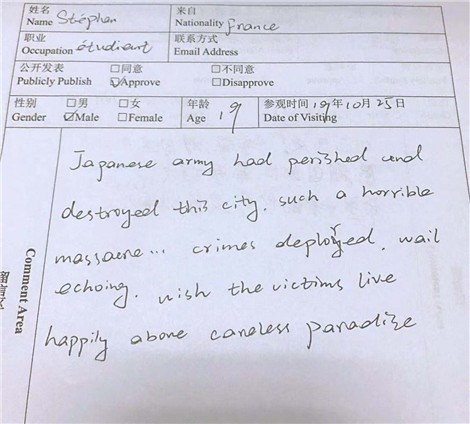 姓名 来自
Name Stéphan Nationality france
职业 联系方式
Occupation étudiant Email Address
公开发表 □同意 □不同意
Publicly Publish ☑Approve □Disapprove
性别 □男 □女 年龄 参观时间 19年10月25日
Gender ☑Male □Female Age 19 Date of Visiting
Japanese army had perished and
destroyed this city. such a horrible
massacre... crimes deployed. wail
echoing. wish the victims live
happily above careless paradise
留言区
Comment Area